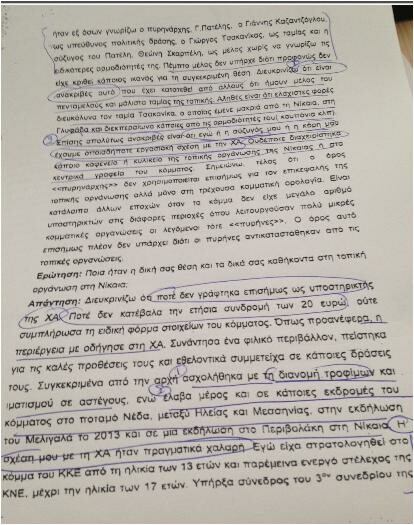 ήταν εξ όσων γνωρίζω ο πυρηνάρχης, Γ.Πατέλης, ο Γιάννης Καζαντζόγλου,
ως υπεύθυνος πολιτικής δράσης, ο Γιώργος Τσακανίκας, ως ταμίας και η
σύζυγος του Πατέλη, Θεώνη Σκαρπέλη, ως μέλος χωρίς να γνωρίζω τις
ειδικότερες αρμοδιότητές της. Πέμπτο μέλος δεν υπάρχε διότι προφανώς δεν
είχε κριθεί κάποιος ικανός για τη συγκεκριμένη θέση. Διευκρινίζω ότι είναι
ανακριβές αυτό που έχει κατατεθεί από άλλους ότι ήμουν μέλος του
πενταμελούς και μάλιστα ταμίας της τοπικής. Αληθές είναι ότι ελάχιστες φορές
διευκόλυνα τον ταμία Τσακανίκα, ο οποίος έμενε μακριά από τη Νίκαια, στη
Γλυφάδα και διεκπεραίωνα κάποιες από τις αρμοδιότητές του( κουπόνια κλπ).
2 Επίσης απολύτως ανακριβές είναι ότι εγώ ή η σύζυγός μου ή η κόρη μου
έχουμε οποιαδήποτε εργασιακή σχέση με την ΧΑ. Ουδέποτε διαχειρίστηκα
κάποιο καφενείο ή κυλικείο της τοπικής οργάνωσης της Νίκαιας ή στα
κεντρικά γραφεία του κόμματος. Σημειώνω, τέλος ότι ο όρος
«πυρηνάρχης» δεν χρησιμοποιείται επισήμως για τον επικεφαλής της
τοπικής οργάνωσης αλλά μόνο στη τρέχουσα κομματική ορολογία. Είναι
κατάλοιπο άλλων εποχών όταν το κόμμα δεν είχε μεγάλο αριθμό
υποστηρικτών στις διάφορες περιοχές όπου λειτουργούσαν πολύ μικρές
κομματικές οργανώσεις οι λεγόμενοι τότε «πυρήνες». Ο όρος αυτό
επισήμως πλέον δεν υπάρχει διότι οι πυρήνες αντικαταστάθηκαν από τις
οργανώσεις.
Ερώτηση: Ποια ήταν η δική σας θέση και τα δικά σας καθήκοντα στη τοπική
οργάνωση στη Νίκαια;
Απάντηση: Διευκρινίζω ότι ποτέ δεν γράφτηκα επισήμως ως υποστηρικτής
της ΧΑ. Ποτέ δεν κατέβαλα την ετήσια συνδρομή των 20 ευρώ, ούτε
συμπλήρωσα τη ειδική φόρμα στοιχείων του κόμματος. Όπως προανέφερα, η
περιέργεια με οδήγησε στη ΧΑ. Συνάντησα ένα φιλικό περιβάλλον, πείστηκα
για τις καλές προθέσεις τους και εθελοντικά συμμετείχα σε κάποιες δράσεις
τους. Συγκεκριμένα από την αρχή ασχολήθηκα με τη διανομή τροφίμων και
ιματισμού σε αστέγους, ενώ έλαβα μέρος και σε κάποιες εκδρομές του
κόμματος στο ποταμό Νέδα, μεταξύ Ηλείας και Μεσσηνίας, στην εκδήλωση
του Μελιγαλά το 2013 και σε μια εκδήλωση στο Περιβολάκι στη Νίκαια. Η
σχέση μου με τη ΧΑ ήταν πραγματικά χαλαρή. Εγώ είχα στρατολογηθεί στο
κόμμα του ΚΚΕ από τη ηλικία των 13 ετών και παρέμεινα ενεργό στέλεχος της
ΚΝΕ, μέχρι την ηλικία των 17 ετών. Υπήρξα σύνεδρος του 3ου συνεδρίου της